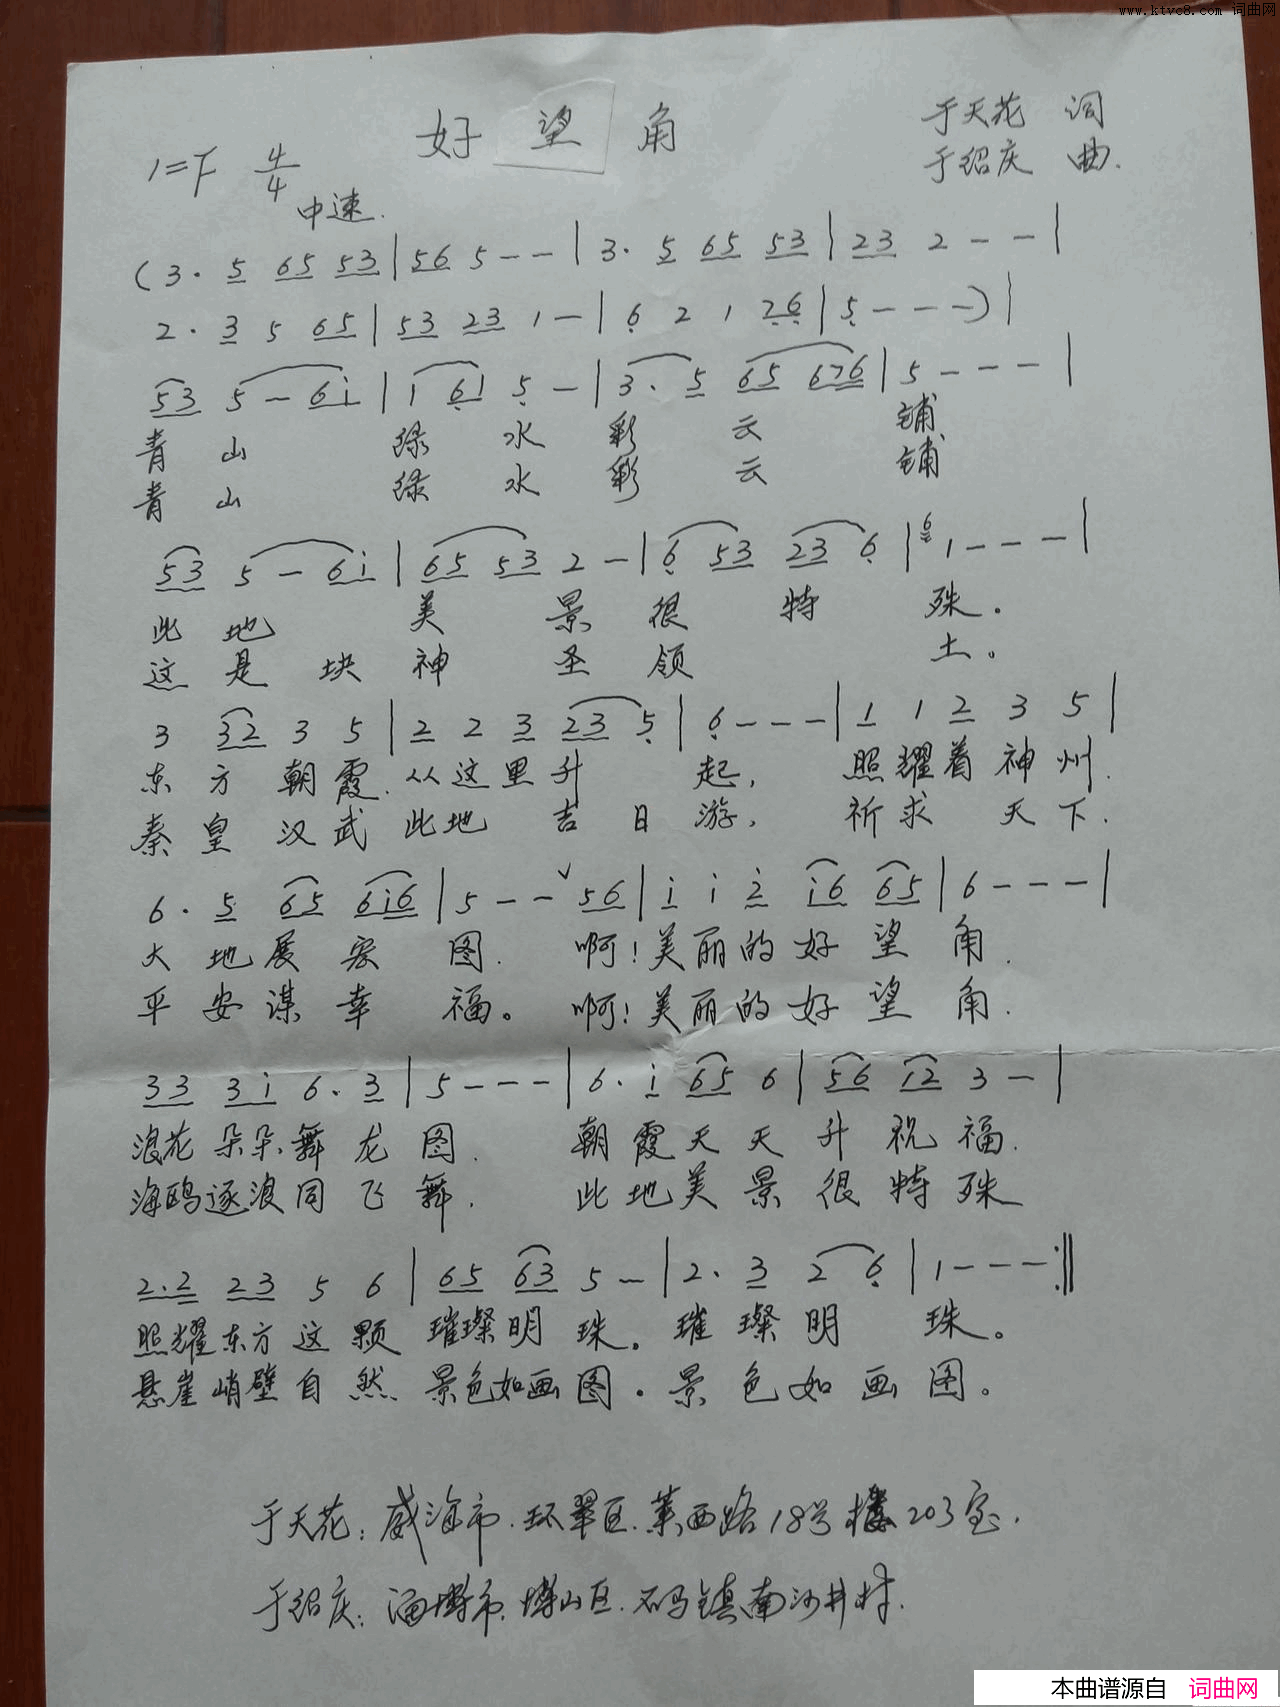 www.ktvc8.com 词曲网
好望角
于天花 词
1=F 4/4
于绍庆 曲.
中速.
(3· 5 65 53 | 56 5 - - | 3· 5 65 53 | 23 2 - - |
2· 3 5 65 | 53 23 1 - | 6 2 1 26 | 5 - - -) |
53 5 - 6i | 1 61 5 - | 3· 5 65 676 | 5 - - - |
青山 绿水彩云铺
青山 绿水彩云铺
53 5 - 6i | 65 53 2 - | 6 53 23 6 | 6 1 - - - |
此地 美景很特殊。
这是块神圣领土。
3 32 3 5 | 2 2 3 23 5 | 6 - - - | 1 1 2 3 5 |
东方朝霞.从这里升起,照耀着神州.
秦皇汉武此地吉日游,祈求天下.
6· 5 65 6i6 | 5 - - ∨ 56 | i i 2 i6 65 | 6 - - - |
大地展宏图.啊!美丽的好望角.
平安谋幸福。啊!美丽的好望角.
33 3i 6· 3 | 5 - - - | 6· i 65 6 | 56 i2 3 - |
浪花朵朵舞龙图.朝霞天天升祝福.
海鸥逐浪同飞舞.此地美景很特殊
2·2 23 5 6 | 65 63 5 - | 2· 3 2 6 | 1 - - - :‖
照耀东方这颗璀璨明珠。璀璨明珠。
悬崖峭壁自然景色如画图。景色如画图。
于天花:威海市.环翠区.莱西路18号楼203室.
于绍庆:淄博市.博山区.石码镇南沙井村.
本曲谱源自 词曲网